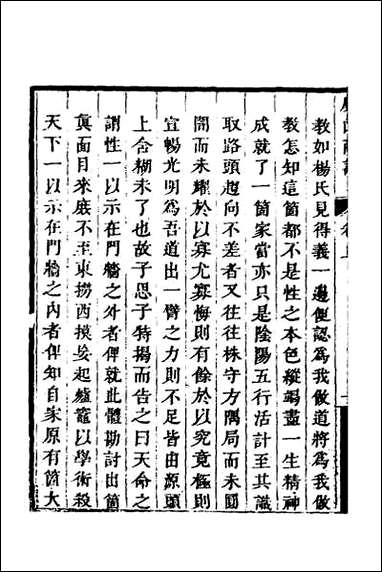 教如楊氏見得義一邊便認爲我做道將爲我做
教怎知這箇都不是性之本色縱竭盡一生精神
成就了一箇家當亦只是陰陽五行活計至其識
取路頭趨向不差者又往往株守方隅局而未圓
闇而未耀於以寡尤寡悔則有餘於以究竟極則
宣暢光明爲吾道出一臂之力則不足皆由源頭
上含糊未了也故子思子特揭而告之曰天命之
謂性一以示在門牆之外者俾就此體勘討出箇
眞面目來庶不至東撈西摸妄起爐竈以學術殺
天下一以示在門牆之內者俾知自家原有箇大